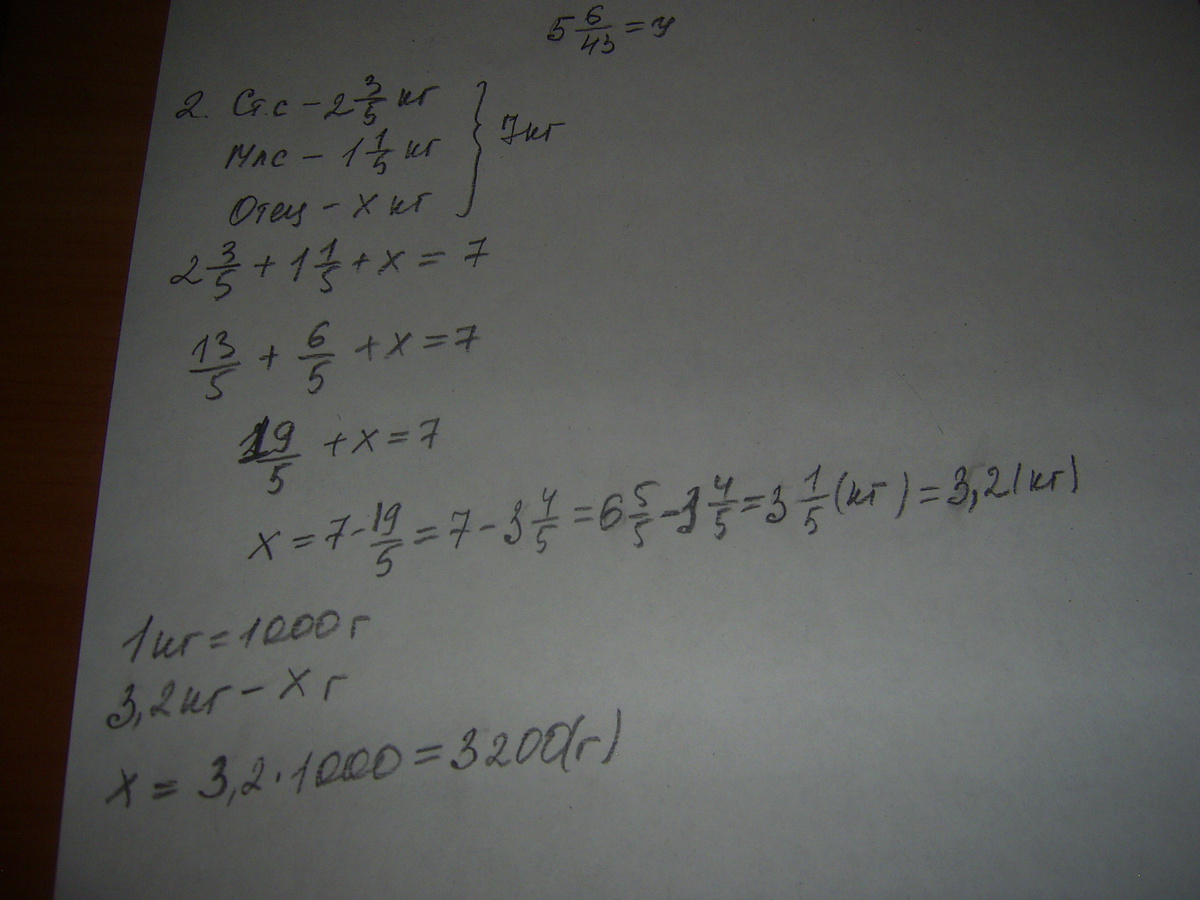 5 6/43 = y
2. Ст.с – 2 3/5 кг
Млс – 1 1/5 кг } 7кг
Отец – x кг
2 3/5 + 1 1/5 + x = 7
13/5 + 6/5 + x = 7
19/5 + x = 7
x = 7 - 19/5 = 7 - 3 4/5 = 6 5/5 - 3 4/5 = 3 1/5 (кг) = 3,2 (кг)
1кг = 1000 г
3,2кг – x г
x = 3,2 · 1000 = 3200(г)